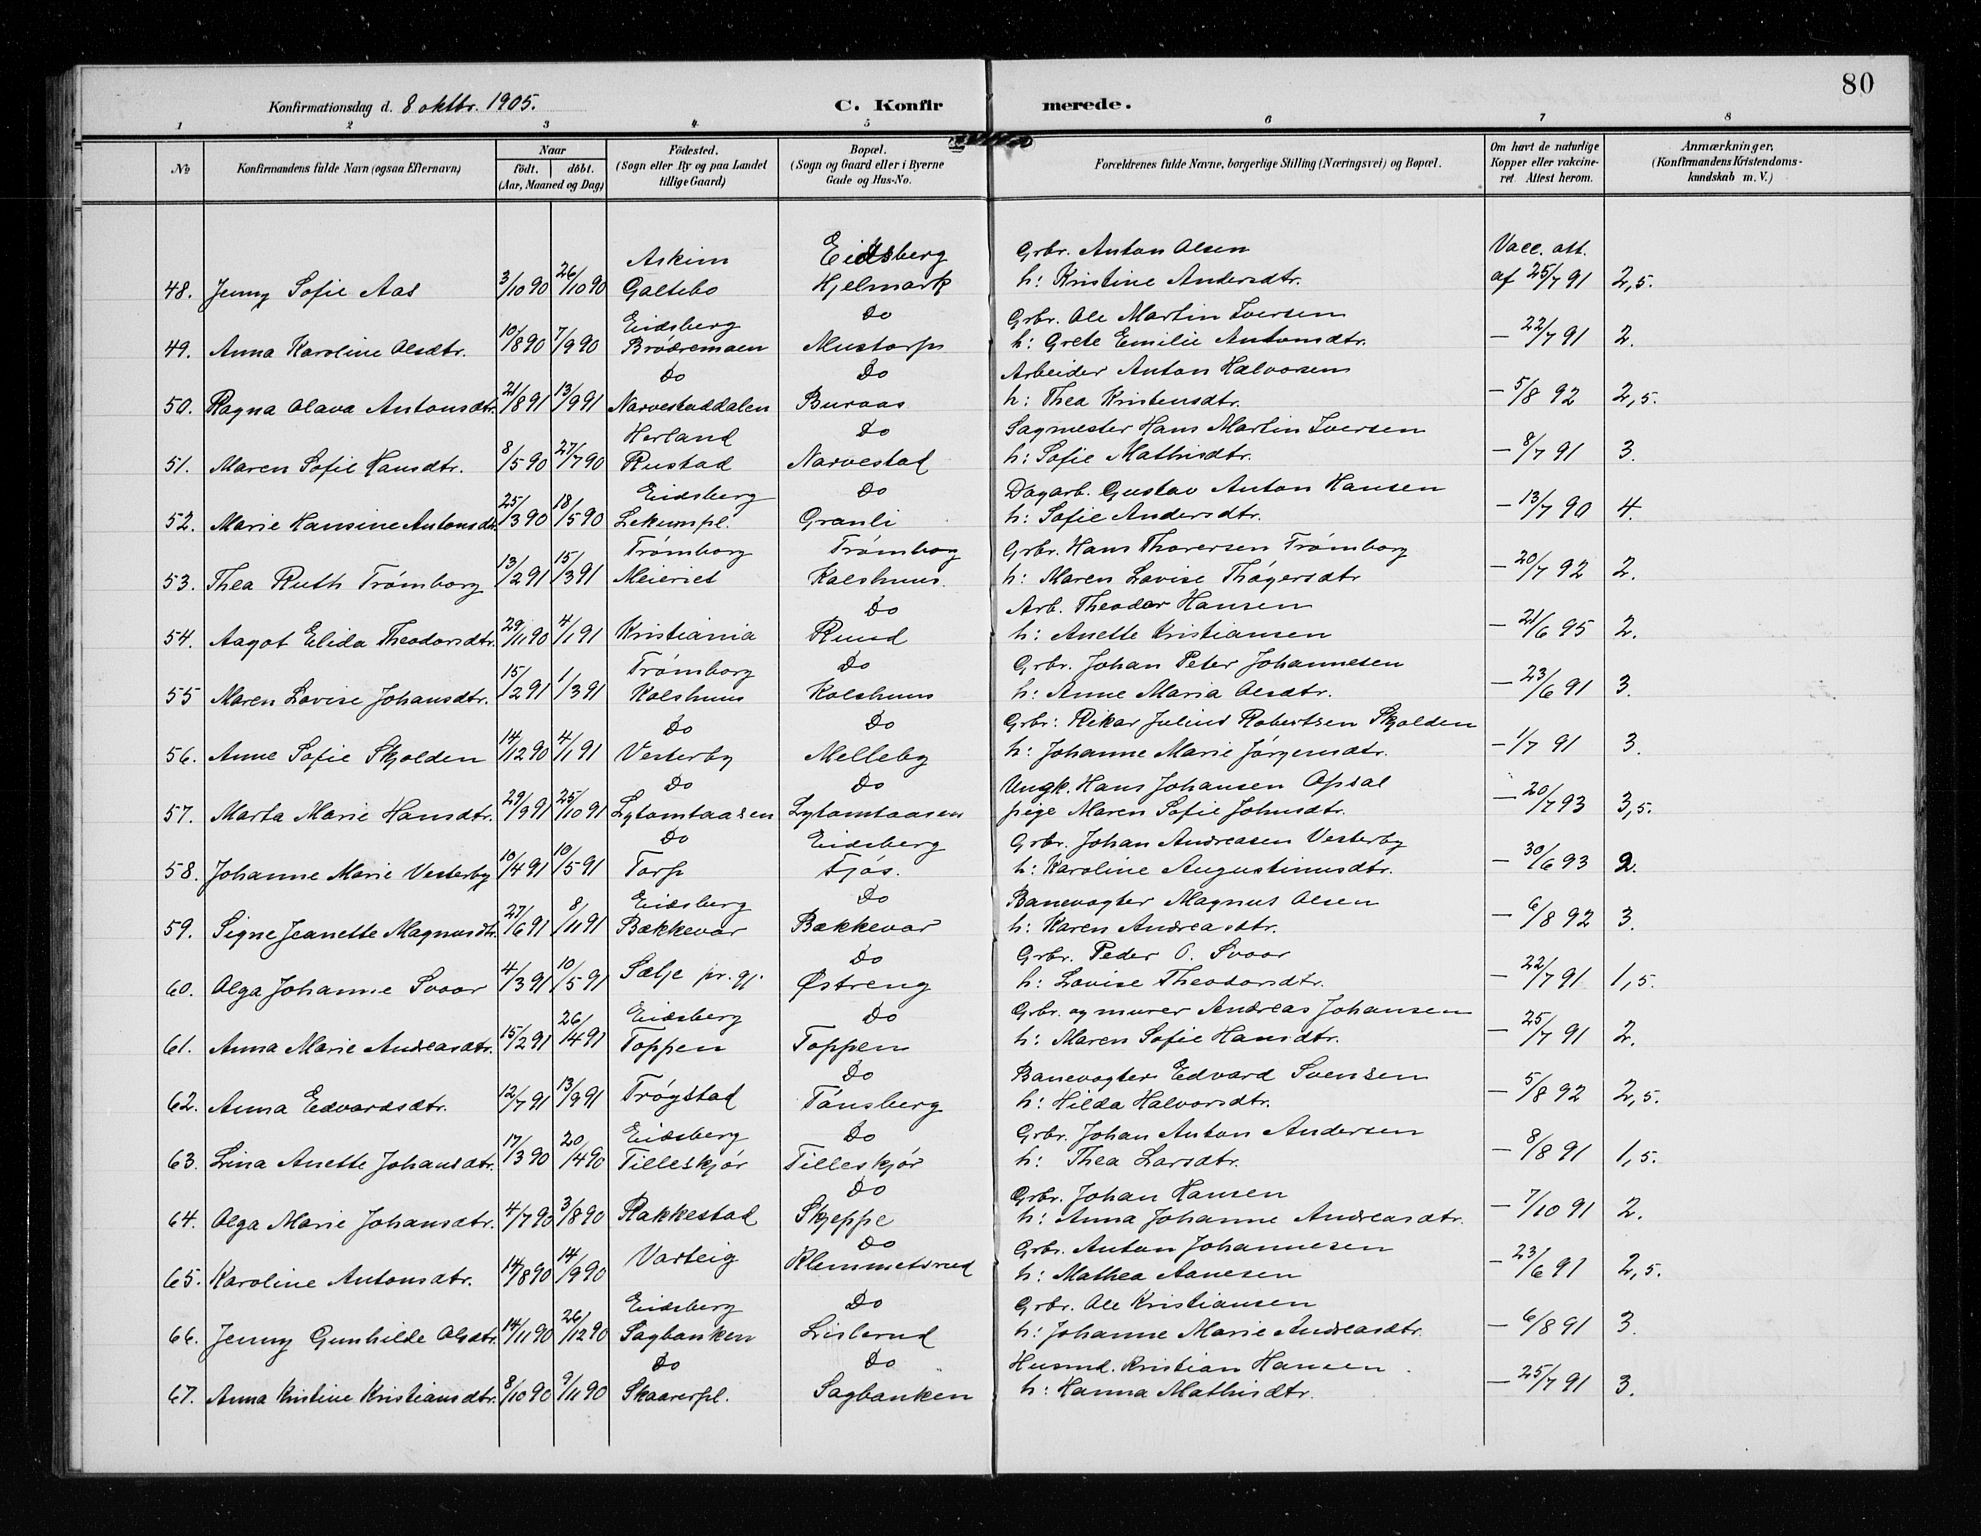 80
Konfirmationsdag d. 8 oktbr. 1905. C. Konfirmerede.
1 2 3 4. 5 6 7 8
No Konfirmandens fulde Navn (ogsaa Efternavn) Naar født. døbt. (Aar, Maaned og Dag) Fødested. (Sogn eller By og paa Landet tillige Gaard) Bopæl. (Sogn og Gaard eller i Byerne Gade og Hus-No. Forældrenes fulde Navne, borgerlige Stilling (Næringsvei) og Bopæl. Om havt de naturlige Kopper eller vakcineret Attest herom. Anmærkninger, (Konfirmandens Kristendomskundskab m. V.)
Askim Eidsberg Grbr. Anton Olsen Vacc. att.
48. Jenny Sofie Aas 3/10 90 26/10 90 Galtebo Hjelmark h: Kristine Andersdtr. af 25/7 91 2,5.
Eidsberg Do Grbr. Ole Martin Iversen
49. Anna Karoline Olsdtr. 10/8 90 7/9 90 Brødremoen Mustorp h: Grete Emilie Antonsdtr. — 22/7 91 2.
Do Do Arbeider Anton Halvorsen
50. Ragna Olava Antonsdtr. 21/8 91 13/9 91 Narvestaddalen Buraas h: Thea Kristensdtr. — 5/8 92 2,5.
Herland Do Sagmester Hans Martin Iversen
51. Maren Sofie Hansdtr. 8/5 90 27/7 90 Rustad Narvestad h: Sofie Mathisdtr. — 8/7 91 3.
Eidsberg Do Dagarb. Gustav Anton Hansen
52. Marie Hansine Antonsdtr. 25/3 90 18/5 90 Lekumpl. Granli h: Sofie Andersdtr. — 13/7 90 4.
Trømborg Trømborg Grbr. Hans Thoresen Trømborg
53. Thea Ruth Trømborg 13/2 91 15/3 91 Meieriet Kolshuus. h: Maren Lovise Thøgersdtr — 20/7 92 2.
Do Arb. Theodor Hansen
54. Aagot Elida Theodorsdtr. 29/11 90 4/1 91 Kristiania Ruud h: Anette Kristiansen — 21/6 95 2.
Trømborg Do Grbr. Johan Peter Johannesen
55 Maren Lovise Johansdtr. 15/2 91 1/3 91 Kolshuus Kolshuus h: Anne Maria Olsdtr. — 23/6 91 3.
Do Do Grbr: Rikar Julius Robertsen Skjolden
56. Anne Sofie Skjolden 14/12 90 4/1 91 Vesterby Melleby h: Johanne Marie Jørgensdtr. — 1/7 91 3.
Do Do Ungk. Hans Johansen Opsal
57. Marta Marie Hansdtr. 29/9 91 25/10 91 Lytomtaasen Lytomtaasen pige Maren Sofie Johnsdtr. — 20/7 93 3,5.
Do Eidsberg Grbr. Johan Andreasen Vesterby
58. Johanne Marie Vesterby 10/4 91 10/5 91 Torp Fjøs. h: Karoline Augustinusdtr. — 30/6 93 2.
Eidsberg Do Banevogter Magnus Olsen
59. Signe Jeanette Magnusdtr. 27/6 91 8/11 91 Bækkevar Bækkevar h: Karen Andreasdtr. — 6/8 92 3.
Do Grbr. Peder O. Svaar
60. Olga Johanne Svaar 4/3 91 10/5 91 Selje pr.gj. Østreng h: Lovise Theodorsdtr. — 22/7 91 1,5.
Eidsberg Do Grbr. og murer Andreas Johansen
61. Anna Marie Andreasdtr. 15/2 91 26/4 91 Toppen Toppen h: Maren Sofie Hansdtr. — 25/7 91 2.
Do Banevogter Edvard Svensen
62. Anna Edvardsdtr. 12/7 91 13/9 91 Trøgstad Tønsberg h: Hilda Halvorsdtr. — 5/8 92 2,5.
Eidsberg Do Grbr. Johan Anton Andersen
63. Lina Anette Johansdtr. 17/3 90 20/4 90 Tilleskjør Tilleskjør h: Thea Larsdtr. — 8/8 91 1,5.
Do Grbr. Johan Hansen
64. Olga Marie Johansdtr. 4/7 90 3/8 90 Rakkestad Skjeppe h: Anna Johanne Andreasdtr. — 7/10 91 2.
Do Grbr. Anton Johannesen
65. Karoline Antonsdtr. 14/8 90 14/9 90 Varteig Klemmetsrud h: Mathea Aanesen — 23/6 91 2,5.
Eidsberg Do Grbr. Ole Kristiansen
66. Jenny Gunhilde Olsdtr. 14/11 90 26/12 90 Sagbanken Lislerud h: Johanne Marie Andreasdtr. — 6/8 91 3.
Do Do Husmd. Kristian Hansen
67. Anna Kristine Kristiansdtr. 8/10 90 9/11 90 Skaarerpl. Sagbanken h: Hanna Mathisdtr. — 25/7 91 3.